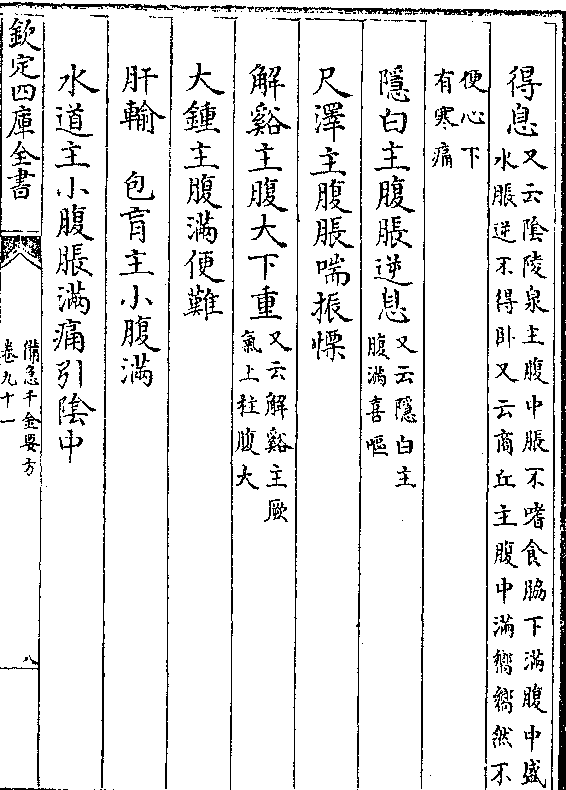 得息又云陰陵泉主腹中脹不嗜食脇下滿腹中盛
水脹逆不得卧又云商丘主腹中滿嚮嚮然不
便心下
有寒痛
隱白主腹脹逆息又云隱白主
腹滿喜嘔
尺澤主腹脹喘振慄
解谿主腹大下重又云解谿主厥
氣上柱腹大
大鍾主腹滿便難
肝輸 包肓主小腹滿
水道主小腹脹滿痛引陰中
欽定四庫全書
備急千金要方
卷九十一
八